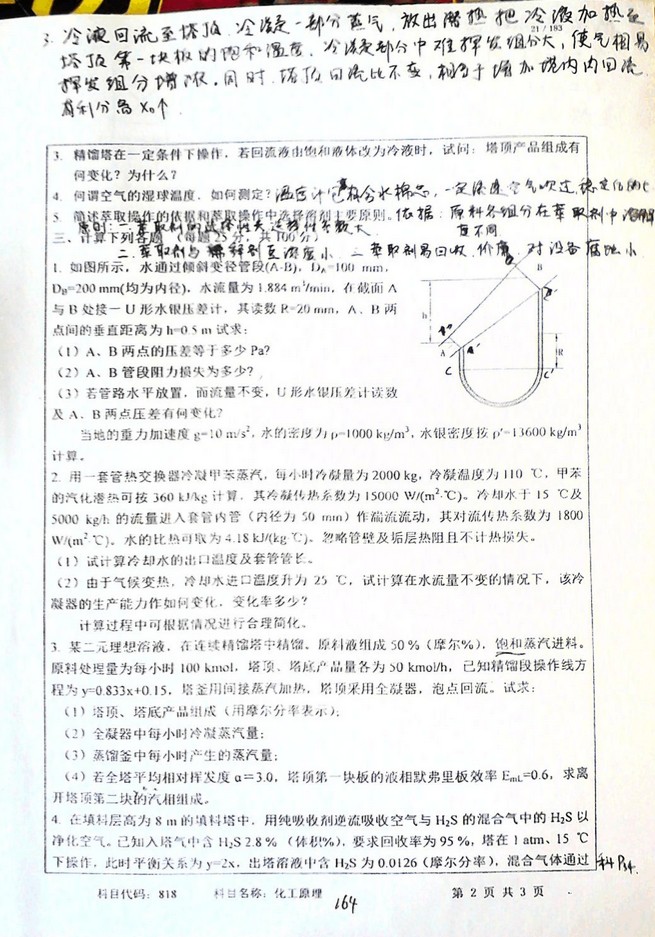 3. 冷液回流至塔顶，冷凝一部分蒸气，放出潜热把冷液加热至
21/193
塔顶第一块板的饱和温度，冷凝部分中难挥发组分大，使气相易
挥发组分增浓，同时，塔顶回流比不变，相当于增加塔内内回流
有利分离 X_D↑
3. 精馏塔在一定条件下操作，若回流液由饱和液体改为冷液时，试问：塔顶产品组成有
何变化？为什么？
4. 何谓空气的湿球温度，如何测定？温度计包裹含水棉芯，一定
5. 简述萃取操作的依据和萃取操作中选择溶剂主要原则。依据：原料各组分在萃取剂中溶解
度不同
原则：一、萃取剂的选择性大，选择性系数大
三、计算下列各题（每题25分，共100分）
二、萃取剂与稀释剂互溶度小 三 萃取剂易回收，价廉，对设备腐蚀小
1. 如图所示，水通过倾斜变径管段(A-B)，D_A=100 mm，
D_B=200 mm(均为内径)，水流量为 1.884 m³/min，在截面 A
与 B 处接一 U 形水银压差计，其读数 R=20 mm，A、B 两
点间的垂直距离为 h=0.5 m 试求：
（1）A、B 两点的压差等于多少 Pa?
（2）A、B 管段阻力损失为多少？
（3）若管路水平放置，而流量不变，U 形水银压差计读数
及 A、B 两点压差有何变化？
当地的重力加速度 g=10 m/s²，水的密度为 ρ=1000 kg/m³，水银密度按 ρ'=13600 kg/m³
计算。
B
B'
h
A''
A
A'
R
C
C'
2. 用一套管热交换器冷凝甲苯蒸汽，每小时冷凝量为 2000 kg，冷凝温度为 110 ℃，甲苯
的汽化潜热可按 360 kJ/kg 计算，其冷凝传热系数为 15000 W/(m²·℃)。冷却水于 15 ℃及
5000 kg/h 的流量进入套管内管（内径为 50 mm）作湍流流动，其对流传热系数为 1800
W/(m²·℃)。水的比热可取为 4.18 kJ/(kg·℃)。忽略管壁及垢层热阻且不计热损失。
（1）试计算冷却水的出口温度及套管管长。
（2）由于气候变热，冷却水进口温度升为 25 ℃，试计算在水流量不变的情况下，该冷
凝器的生产能力作如何变化，变化率多少？
计算过程中可根据情况进行合理简化。
3. 某二元理想溶液，在连续精馏塔中精馏。原料液组成 50％（摩尔％），饱和蒸汽进料。
原料处理量为每小时 100 kmol，塔顶、塔底产品量各为 50 kmol/h，已知精馏段操作线方
程为 y=0.833x+0.15，塔釜用间接蒸汽加热，塔顶采用全凝器，泡点回流。试求：
（1）塔顶、塔底产品组成（用摩尔分率表示）；
（2）全凝器中每小时冷凝蒸汽量；
（3）蒸馏釜中每小时产生的蒸汽量；
（4）若全塔平均相对挥发度 α=3.0，塔顶第一块板的液相默弗里板效率 E_mL=0.6，求离
开塔顶第二块的汽相组成。
4. 在填料层高为 8 m 的填料塔中，用纯吸收剂逆流吸收空气与 H₂S 的混合气中的 H₂S 以
净化空气。已知入塔气中含 H₂S 2.8％（体积％），要求回收率为 95％，塔在 1 atm、15 ℃
下操作，此时平衡关系为 y=2x，出塔溶液中含 H₂S 为 0.0126（摩尔分率），混合气体通过
科目代码：818 科目名称：化工原理 第 2 页 共 3 页
164